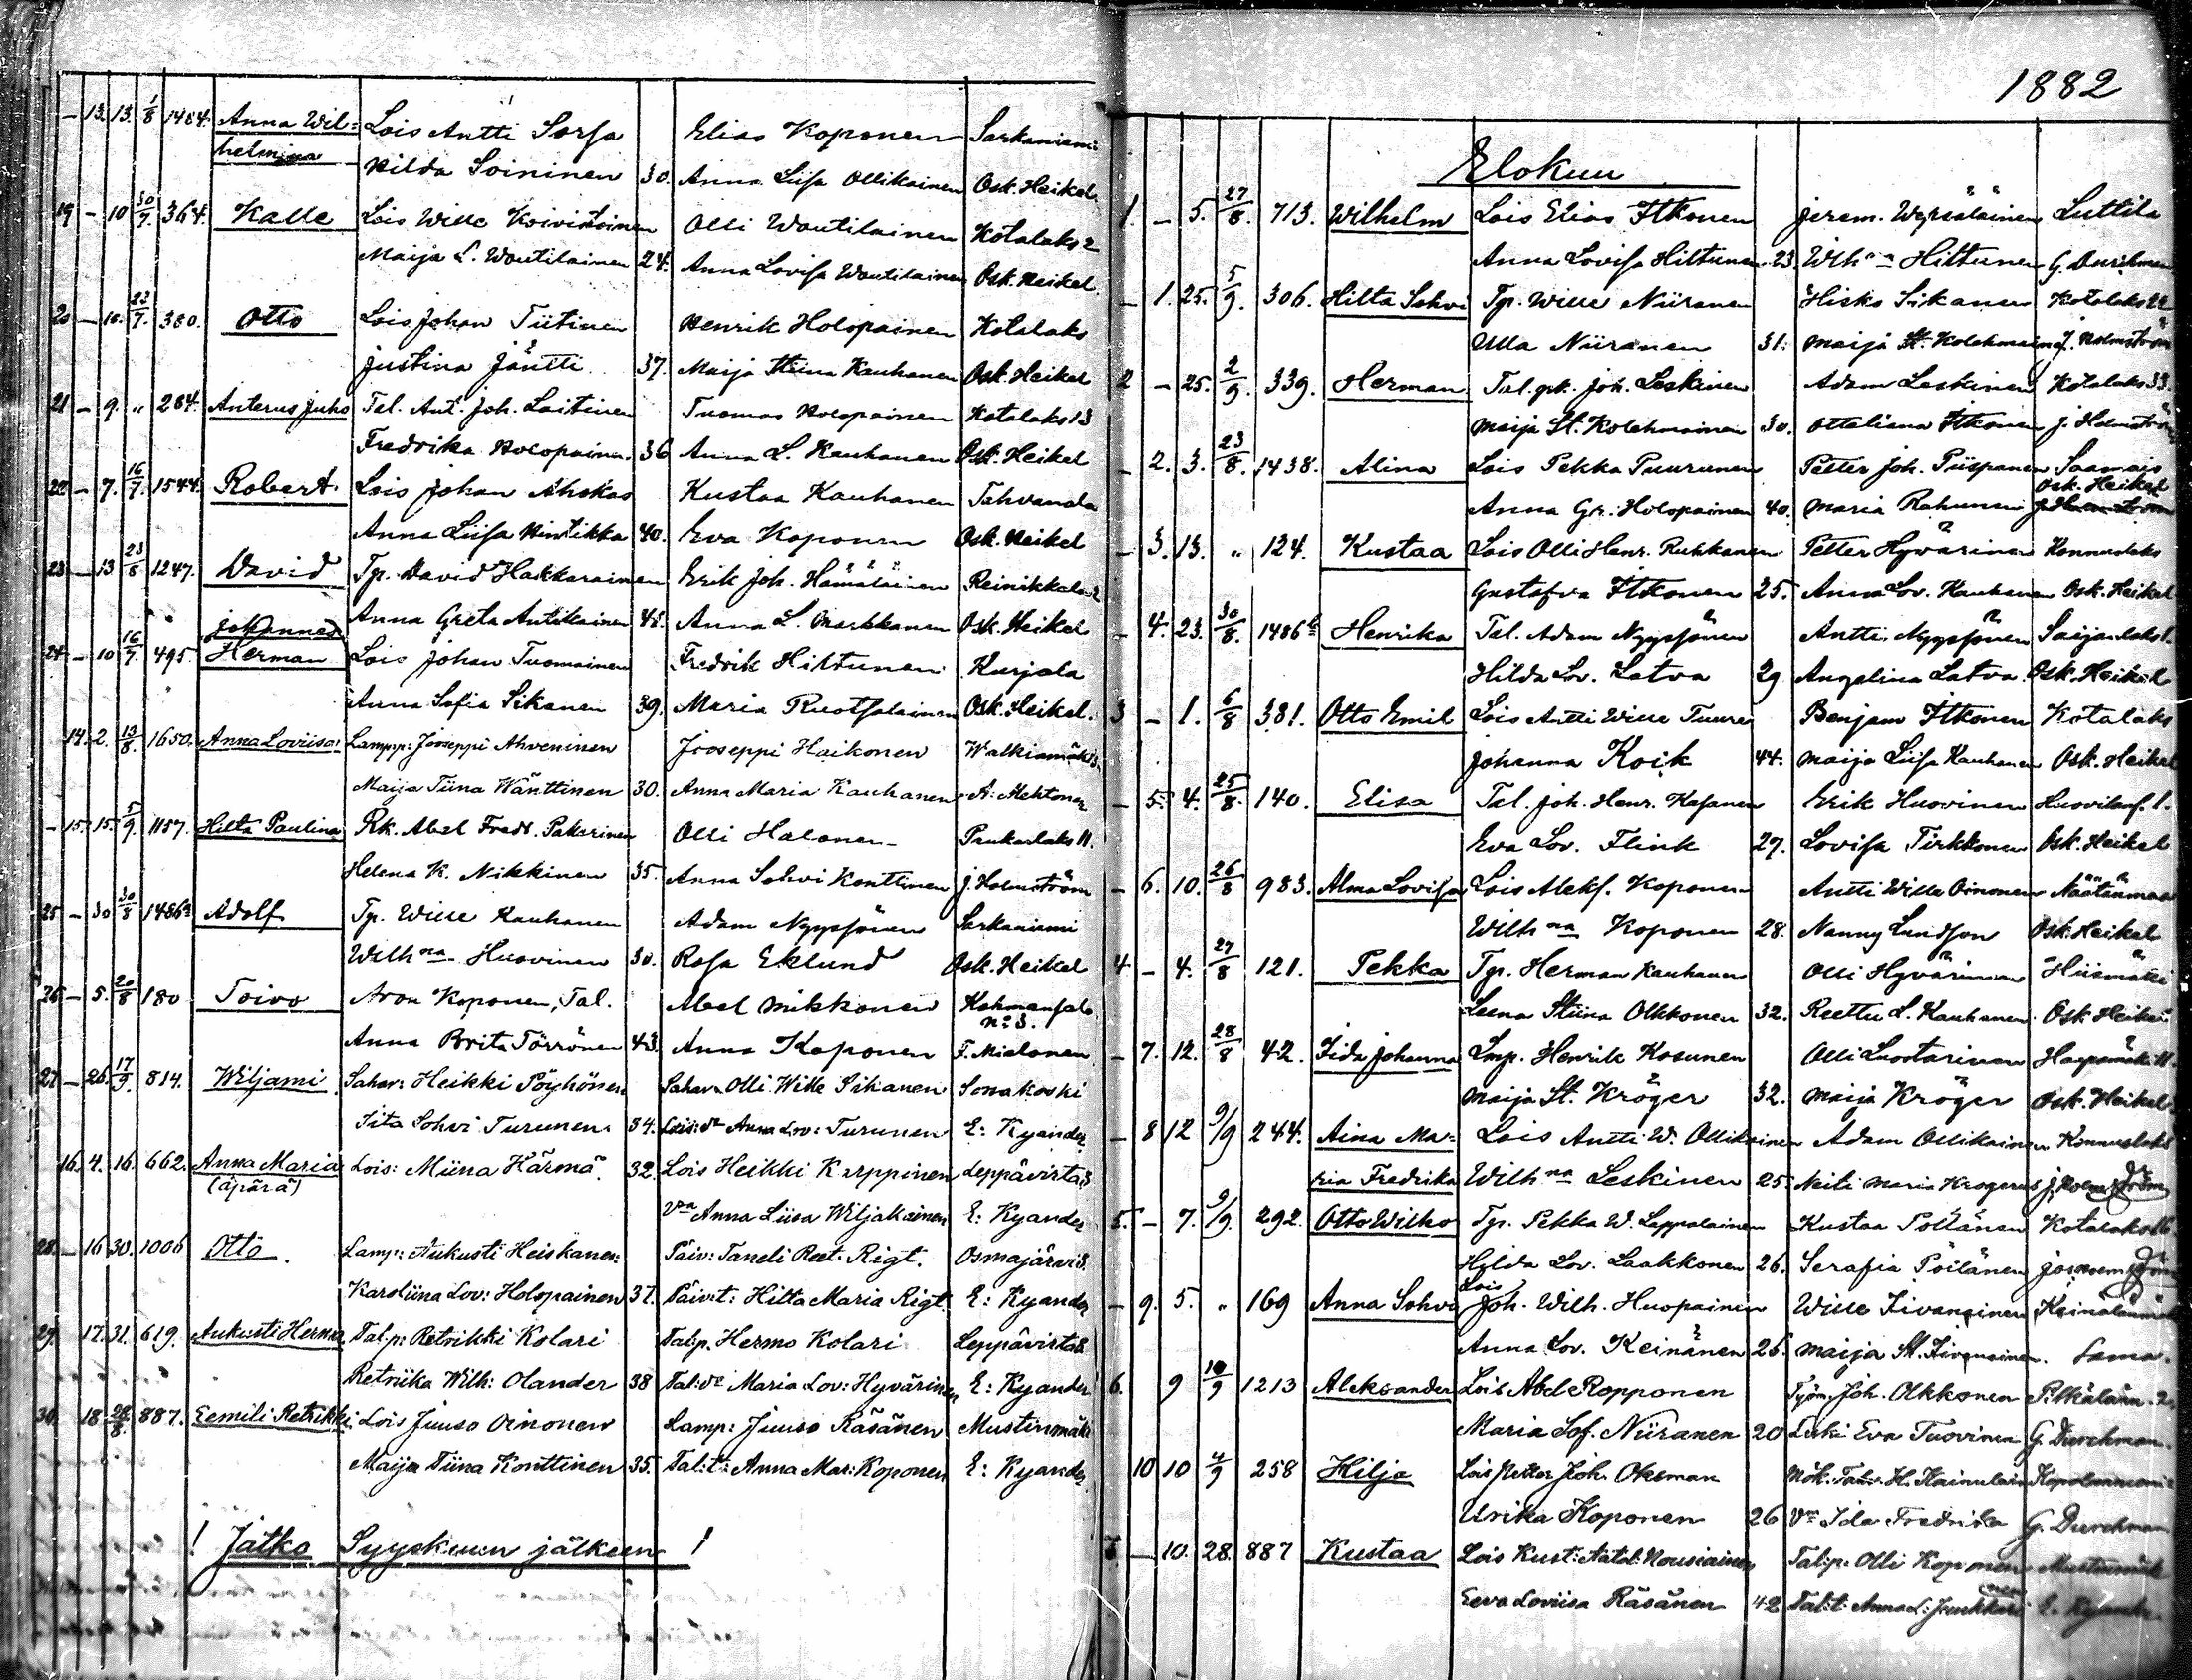 — 13. 13. 1/8 1484. Anna Wil= Lois Antti Sorsa Elias Koponen Sarkaniemi
helmina Hilda Soininen 30. Anna Liisa Ollikainen Osk. Heikel
19 — 10 30/7. 364. Kalle Lois Wille Koivistoinen Olli Woutilainen Kotalaks 2
Maija L. Woutilainen 24. Anna Lovisa Woutilainen Osk. Heikel.
20 — 10. 23/7. 380. Otto Lois Johan Tiitinen Henrik Holopainen Kotalaks
Justina Jäntti 37. Maija Stiina Kauhanen Osk. Heikel
21 — 9. " 264. Anterus Juho Tal. Ant. Joh. Laitinen Tuomas Holopainen Kotalaks 13
Fredrika Holopainen 36 Anna L. Kauhanen Osk. Heikel
22 — 7. 16/7. 1544. Robert Lois Johan Ahokas Kustaa Kauhanen Tahvanala
Anna Liisa Hintikka 40. Eva Koponen Osk. Heikel
23 — 13 23/8 1247. David Tp. David Hakkarainen Erik Joh. Hämäläinen Reinikkala 2
Anna Greta Antikainen 41. Anna L. Markkanen Osk. Heikel
Johannes
24 — 10 16/7. 495. Herman Lois Johan Tuomainen Fredrik Hiltunen Kurjala
Anna Sofia Sikanen 39. Maria Ruotsalainen Osk. Heikel.
14. 2. 13/8. 1650. Anna Loviisa Lampp: Jooseppi Ahveninen Jooseppi Haikonen Walkiamäki
Maija Tiina Wänttinen 30. Anna Maria Kauhanen A. Ahtonen
— 15. 15. 5/9. 1157. Hilta Paulina Rk. Abel Fredr. Pakarinen Olli Halonen Paukarlaks 11.
Helena K. Nikkinen 35. Anna Sohvi Konttinen J. Holmström
25 — 30 30/8 1486a Adolf Tp. Wille Kauhanen Adam Nyyssönen Sarkaniemi
Wilhna Huovinen 30. Rosa Eklund Osk. Heikel
26 — 5. 20/8 180 Toivo Aron Koponen, Tal. Abel Mikkonen
No 3.
Anna Brita Törrönen 43. Anna Koponen F. Mialonen
27. — 26. 17/9. 814. Wiljami Sahar: Heikki Pöyhönen Sahar. Olli Wille Sikanen Sorsakoski
Iita Sohvi Turunen 34. Lois: vr Anna Lov: Turunen E: Kyander
16. 4. 16. 662. Anna Maria Lois: Miina Härmä 32. Lois Heikki Karppinen Leppävirta 3
(äpärä)
vm Anna Liisa Wiljakainen E: Kyander
28. — 16 30. 1006 Otto. Lamp: Aukusti Heiskanen: Päiv: Taneli Reet. Rigt. Osmajärvi 3.
Karoliina Lov: Holopainen 37. Päiv:t: Hilta Maria Rigt E: Kyander
29. 17. 31. 619. Aukusti Herman Tal:p: Retrikki Kolari Talip. Hermo Kolari Leppävirta
Retriika Wilh: Olander 38 Tal:vr Maria Lov: Hyvärinen E: Kyander
30. 18. 28/8. 887. Eemili Retrikki Lois Juuso Oinonen Lamp: Juuso Räsänen Mustinmäki
Maija Tiina Konttinen 35. Tal:t: Anna Mar: Koponen E: Kyander
! Jatko Syyskuun jälkeen !
1882
Elokuu
1. — 5. 27/8. 713. Wilhelm Lois Elias Itkonen Jerem. Weps​äläinen Luttila
Anna Lovisa Hiltunen 23. Wilhna Hiltunen G. Durchman
— 1. 25. 5/9. 306. Hilta Sohvi Tp. Wille Niiranen Hisko Sikanen Kotalaks 22
Ulla Niiranen 31. Maija St. Kolehmainen J. Holmström
2 — 25. 2/9. 339. Herman Tal. pk. Joh. Leskinen Adam Leskinen Kotalaks 33.
Maija St. Kolehmainen 30. Otteliana Itkonen J. Holmström
— 2. 3. 23/8. 1438. Alina Lois Pekka Puurunen Petter Joh. Piispanen Saamais
Osk. Heikel
Anna Gr. Holopainen 40. Maria Rahunen J. Holmström
— 3. 13. " 124. Kustaa Lois Olli Henr. Rukkanen Petter Hyvärinen Konnuslaks
Gustafva Itkonen 25. Anna Lov. Kauhanen Osk. Heikel
— 4. 23. 30/8. 1486b Henrika Tal. Adam Nyyssönen Antti Nyyssönen Saijanlaks 1.
Hilda Lov. Latva 29 Angelina Latva Osk. Heikel
3 — 1. 6/8 381. Otto Emil Lois Antti Wille Tuure Benjam Itkonen Kotalaks
Johanna Koik 44. Maija Liisa Kauhanen Osk. Heikel
— 5. 4. 25/8. 140. Elisa Tal. Joh. Henr. Kasanen Erik Huovinen Huovilans. 1.
Eva Lov. Flink 27. Lovisa Tirkkonen Osk. Heikel
— 6. 10. 26/8 983. Alma Lovisa Lois Aleks. Koponen Antti Wille Oinonen Näätänmaa
Wilhna Koponen 28. Nanny Lundson Osk. Heikel
4 — 4. 27/8 121. Pekka Tp. Herman Kauhanen Olli Hyvärinen Hiismäki
Leena Stiina Olkkonen 32. Reettu L. Kauhanen Osk Heikel
— 7. 12. 28/8 42. Iida Johanna Lmp. Henrik Kosunen Olli Luostarinen Haapamäki 11.
Maija St. Kröger 32. Maija Kröger Osk. Heikel
— 8 12 9/9 244. Aina Ma= Lois Antti W. Ollikainen Adam Ollikainen Konnuslaks
ria Fredrika Wilhna Leskinen 25. Neiti Maria Krogerus J. Holmström
5. — 7. 9/9. 292. Otto Wilho Tp. Pekka W. Lappalainen Kustaa Pöllänen Kotalaks 16.
Hilda Lov. Laakkonen 26. Serafia Pöllänen
— 9. 5. " 169 Anna Sohvi Lois Joh. Wilh. Huopainen Wille Iivanainen Keinälänmäki
Anna Lov. Keinänen 26. Maija St. Iivanainen. Sama.
6. 9 10/9 1213 Aleksander Lois Abel Ropponen Työm. Joh. Olkkonen
Maria Sof. Niiranen 20 Leski Eva Tuovinen G. Durchman.
10 10 4/9 258 Hilja Lois Petter Joh. Oksman Mök. Tahv. H. Kainulainen
Urika Koponen 26 vm Ida Fredrika G. Durchman
7 — 10. 28. 887 Kustaa Lois Kust: Aatol. Nousiainen Tal:p: Olli Koponen Mustinmäki
Eeva Loviisa Räsänen 42 Tal:t: Anna L: Junkkari E. Kyander